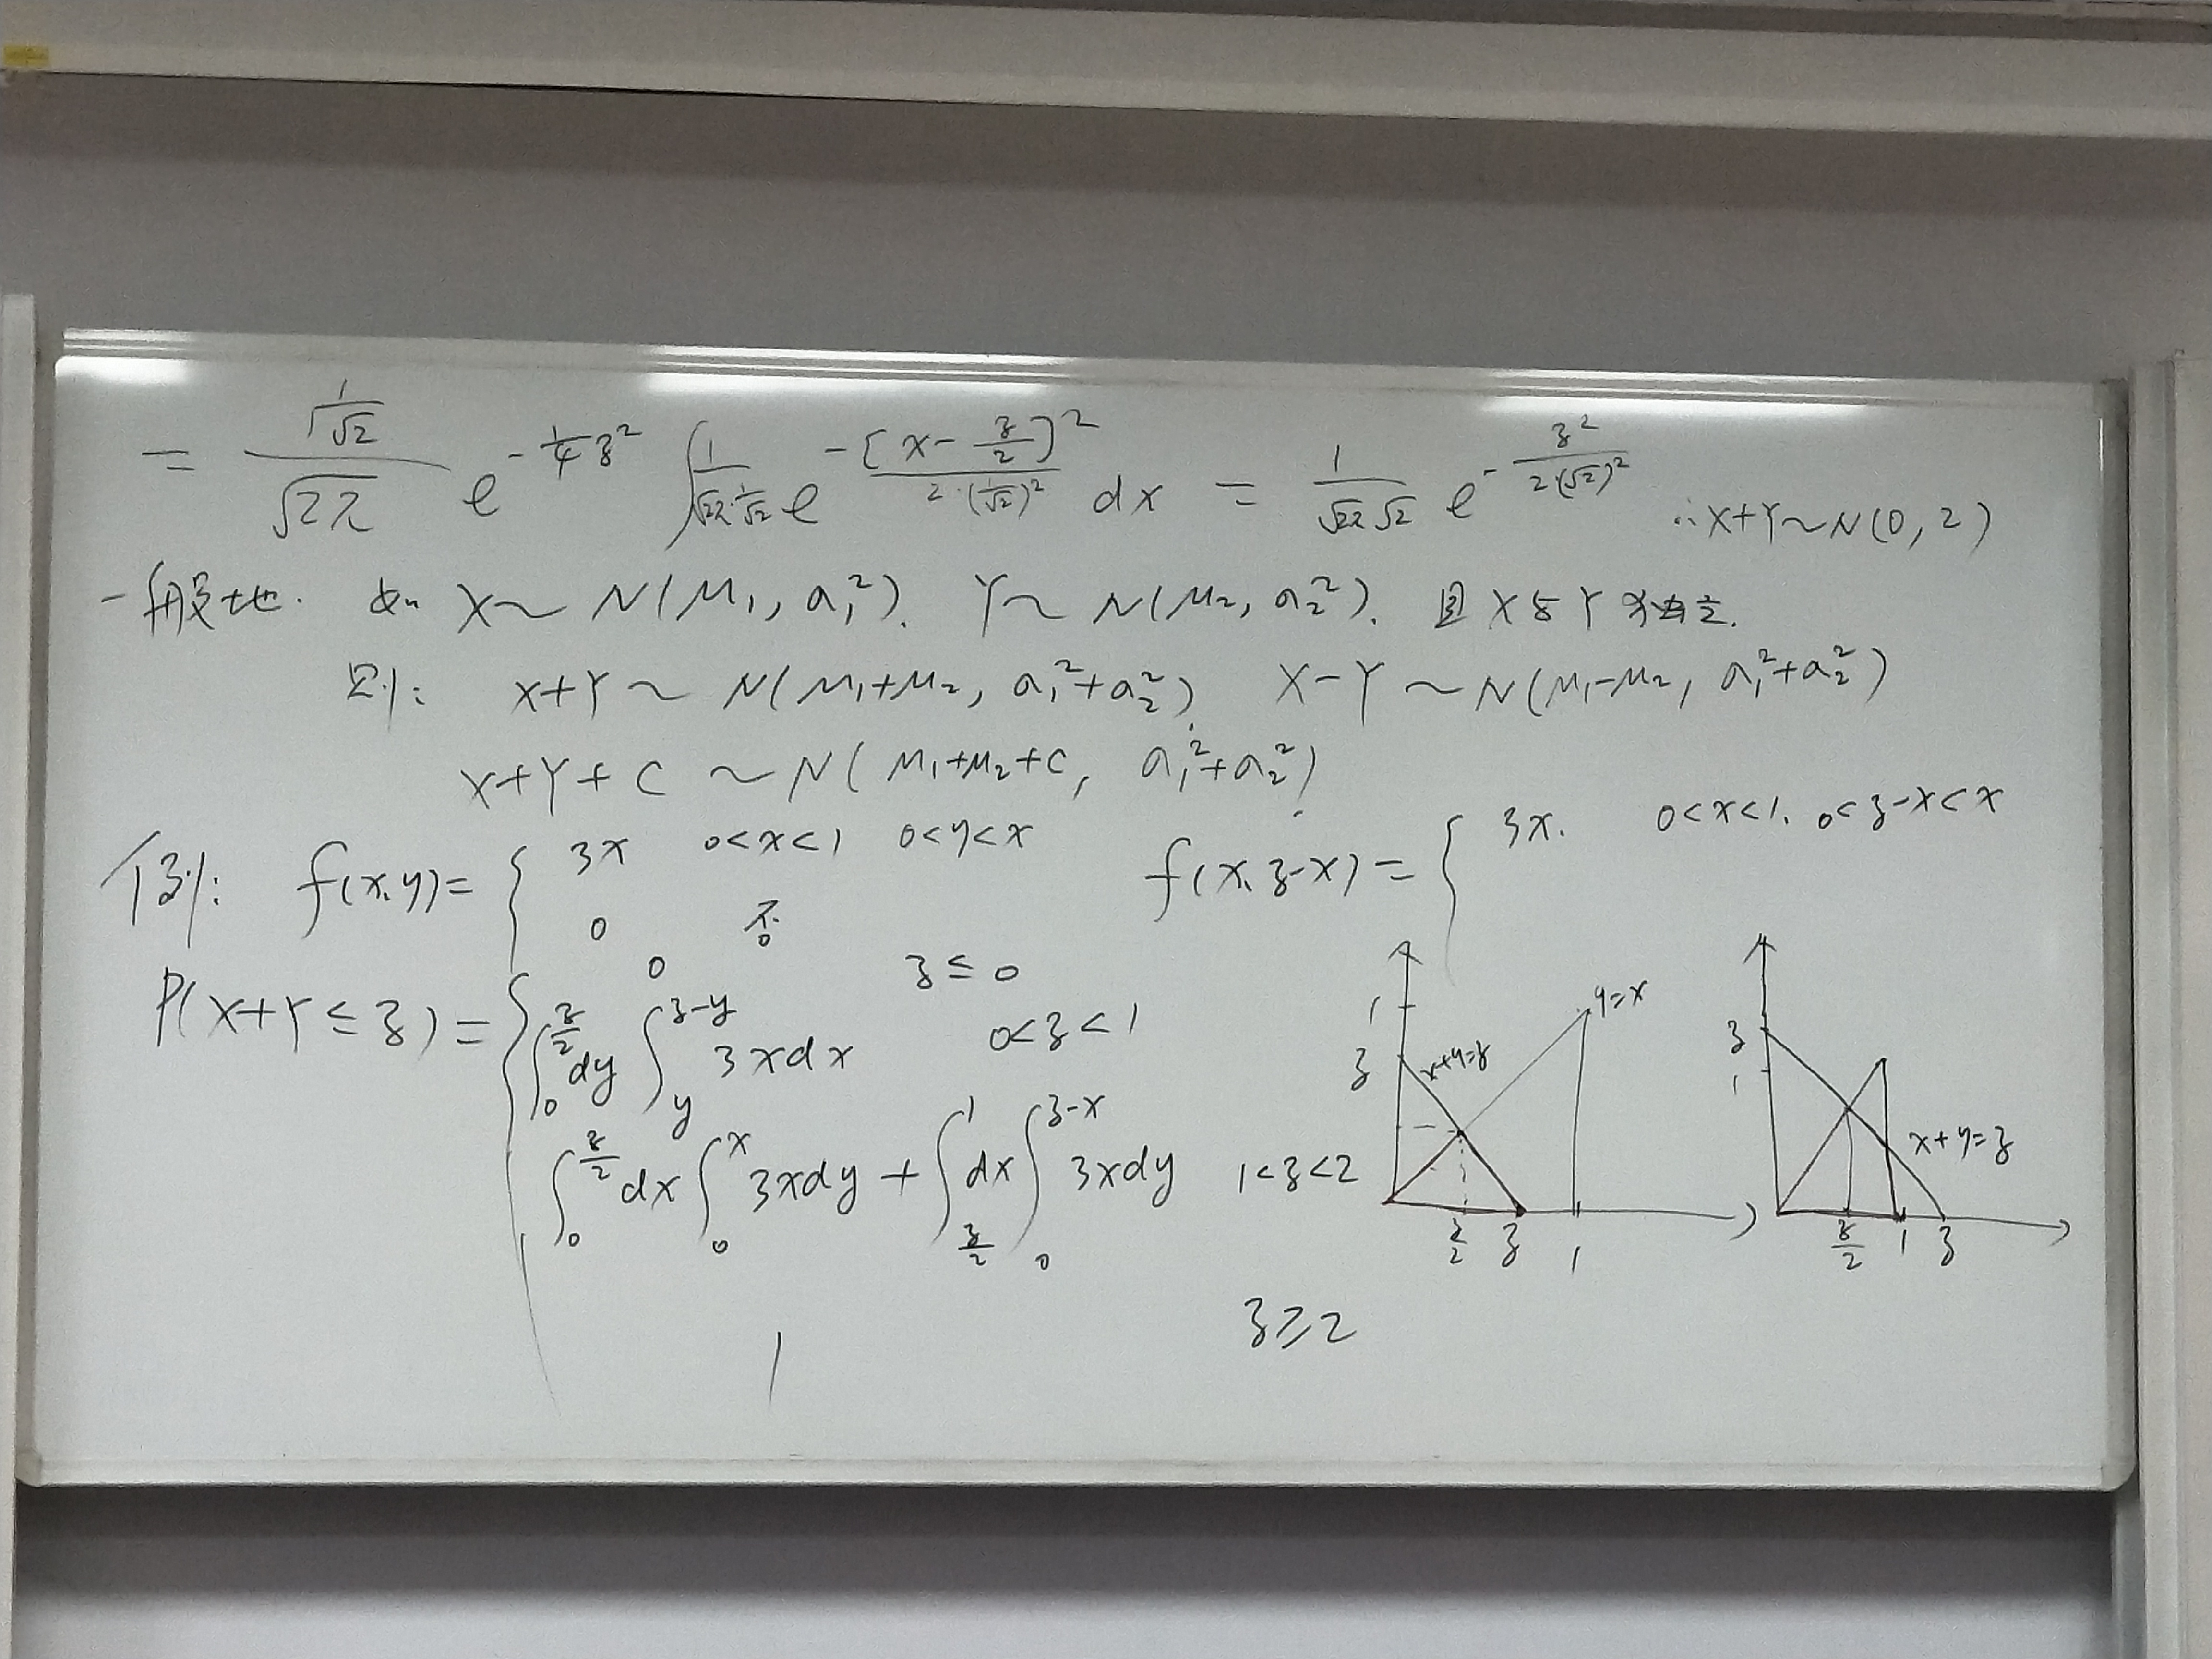 = \frac{\frac{1}{\sqrt{2}}}{\sqrt{2π}} e^{-\frac{1}{4}z^2} ∫ \frac{1}{\sqrt{2π}·\frac{1}{\sqrt{2}}} e^{-\frac{[x-\frac{z}{2}]^2}{2·(\frac{1}{\sqrt{2}})^2}} dx = \frac{1}{\sqrt{2π}\sqrt{2}} e^{-\frac{z^2}{2·(\sqrt{2})^2}} ∴X+Y~N(0,2)
一般地. 如 X~ N(μ₁, σ₁²). Y~ N(μ₂, σ₂²). 且X与Y独立.
则: X+Y ~ N(μ₁+μ₂, σ₁²+σ₂²) X-Y ~ N(μ₁-μ₂, σ₁²+σ₂²)
X+Y+C ~ N(μ₁+μ₂+C, σ₁²+σ₂²)
例: f(x,y)= { 3x 0<x<1 0<y<x f(x,z-x)= { 3x. 0<x<1. 0<z-x<x
0 否
P(X+Y≤z)= { 0 z≤0
∫_0^{\frac{z}{2}} dy ∫_y^{z-y} 3xdx 0<z<1
∫_0^{\frac{z}{2}} dx ∫_0^x 3xdy + ∫_{\frac{z}{2}}^1 dx ∫_0^{z-x} 3xdy 1<z<2
1 z≥2
1 y=x
z x+y=z
\frac{z}{2} z 1
z
1
x+y=z
\frac{z}{2} 1 z